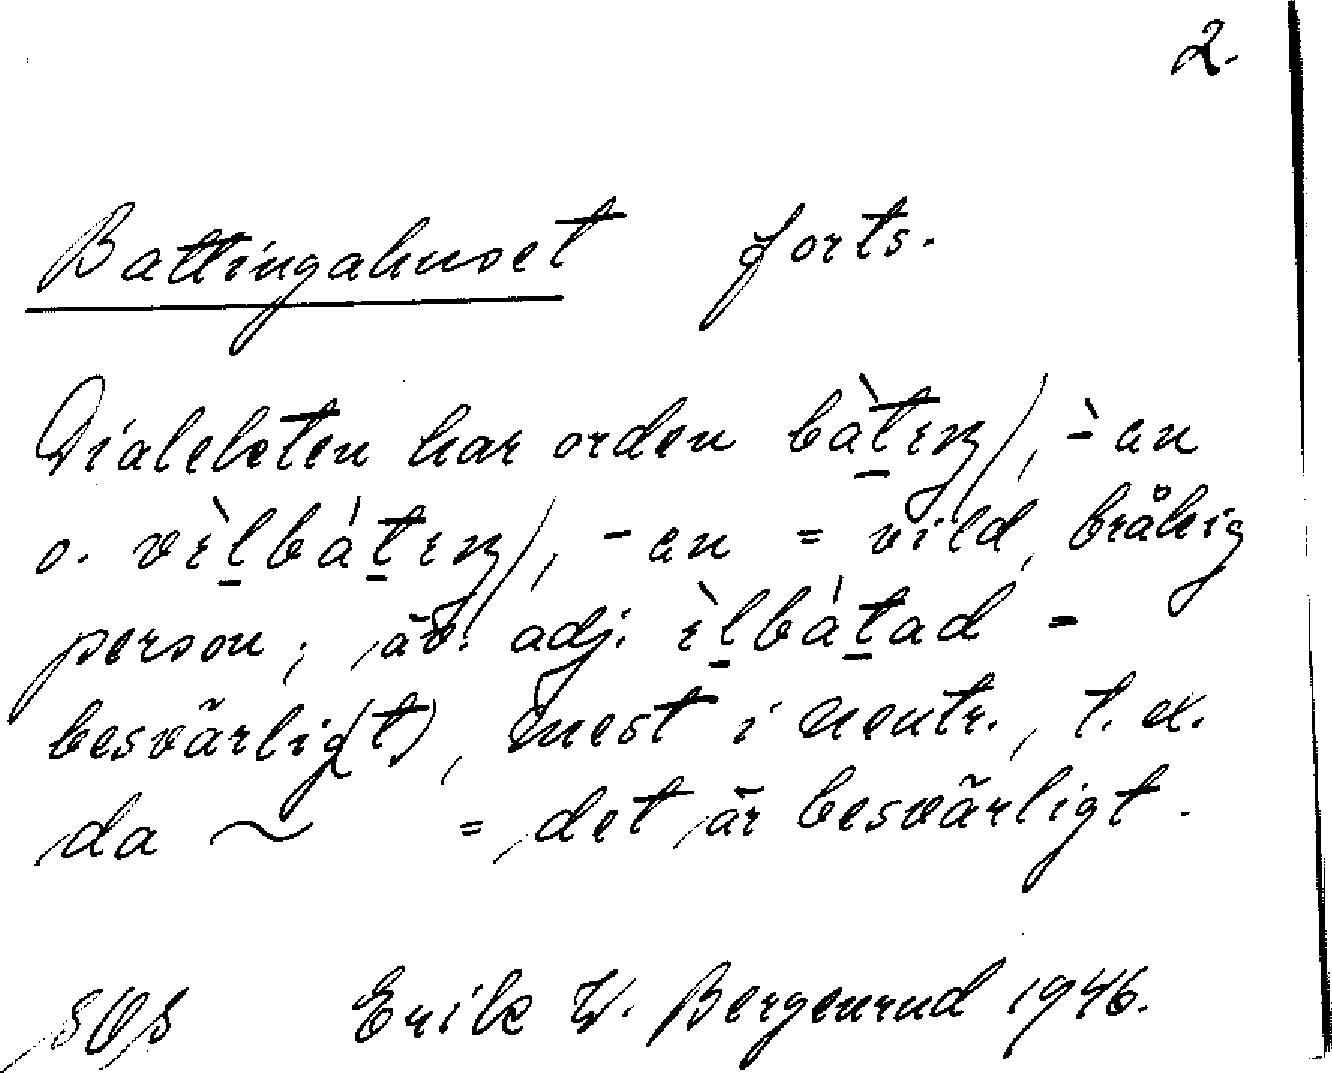 2.
Battingahuset forts.
Dialekten har orden bàt̲ɪŋ, -̀en
o. vɪ̀l̲bát̲ɪŋ, -en = vild, bråkig
person; äv. adj. ɪ̀l̲bát̲ad =
besvärlig(t), mest i neutr., t. ex.
da ~ = det är besvärligt.
Erik W. Bergenrud 1946.